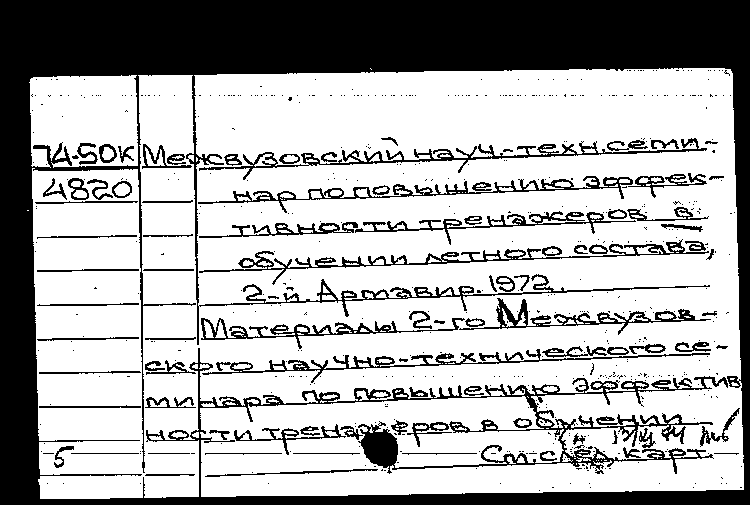 74-50к Межвузовский науч.-техн. семи-
4820 нар по повышению эффек-
тивности тренажеров в
обучении летного состава,
2-й. Армавир. 1972.
Материалы 2-го Межвузов-
ского научно-технического се-
минара по повышению эффектив
ности тренажеров в обучении
5 См. след. карт.